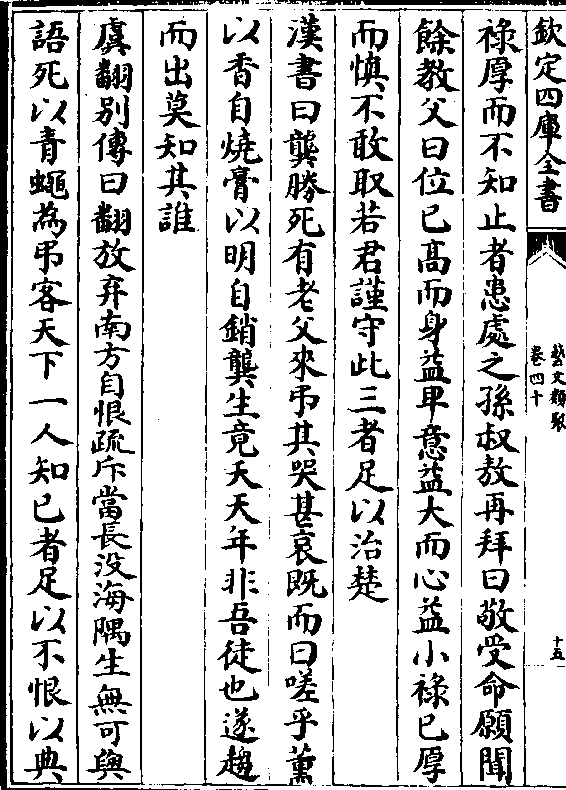 欽定四庫全書
藝文類聚
卷四十
十五
祿厚而不知止者患處之孫叔敖再拜曰敬受命願聞
餘教父曰位已髙而身益卑意益大而心益小祿已厚
而慎不敢取若君謹守此三者足以治楚
漢書曰龔勝死有老父來弔其哭甚哀既而曰嗟乎薰
以香自燒膏以明自銷龔生竟夭天年非吾徒也遂趨
而出莫知其誰
虞翻别傳曰翻放弃南方自恨疏斥當長没海隅生無可與
語死以青蠅為弔客天下一人知已者足以不恨以典